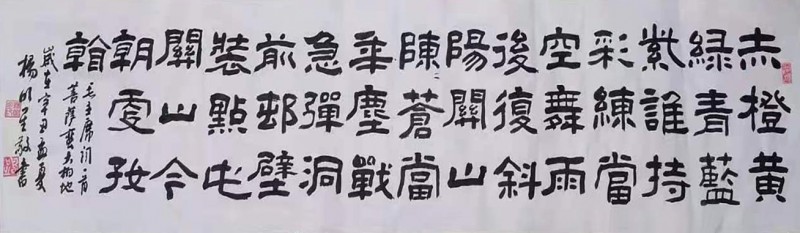 赤橙黄
綠青藍
紫誰持
彩練當
空舞雨
後復斜
陽關山
陳〻蒼當
年塵戰
急彈洞
前邨壁
裝點此
關山今
朝更好
看
毛主席詞一首
菩薩蠻大柏地
歲在辛丑孟夏
楊書